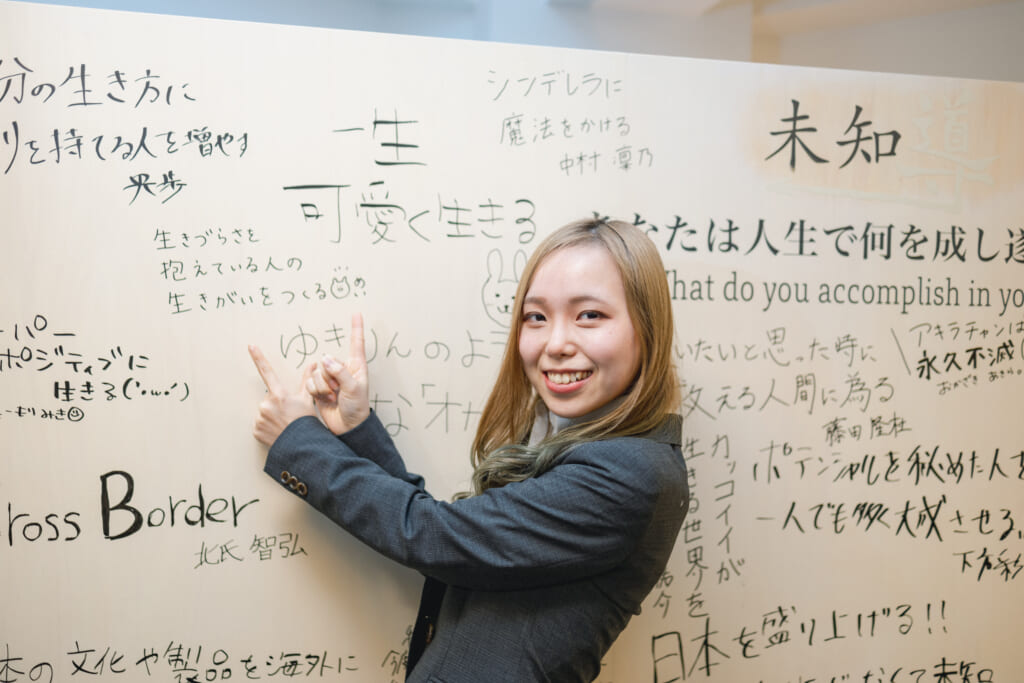 分の生き方に
りを持てる人を増やす
央歩
一生
可愛く生きる
シンデレラに
魔法をかける
中村 凜乃
未知
道
なたは人生で何を成し遂
hat do you accomplish in yo
生きづらさを
抱えている人の
生きがいをつくる
パー
ポジティブに
生きる(
ゆきりんのよう
な「オカ
いたいと思った時に
教える人間に為る
藤田
アキラチャンは
永久不滅
おがさ あきら。
カッコイイが
生きる世界を
ポテンシャルを秘めた人を
一人でも多く大成させる。
ross Border
北氏 智弘
日本を盛り上げる!!
本の 文化や製品を海外に
なくて未知